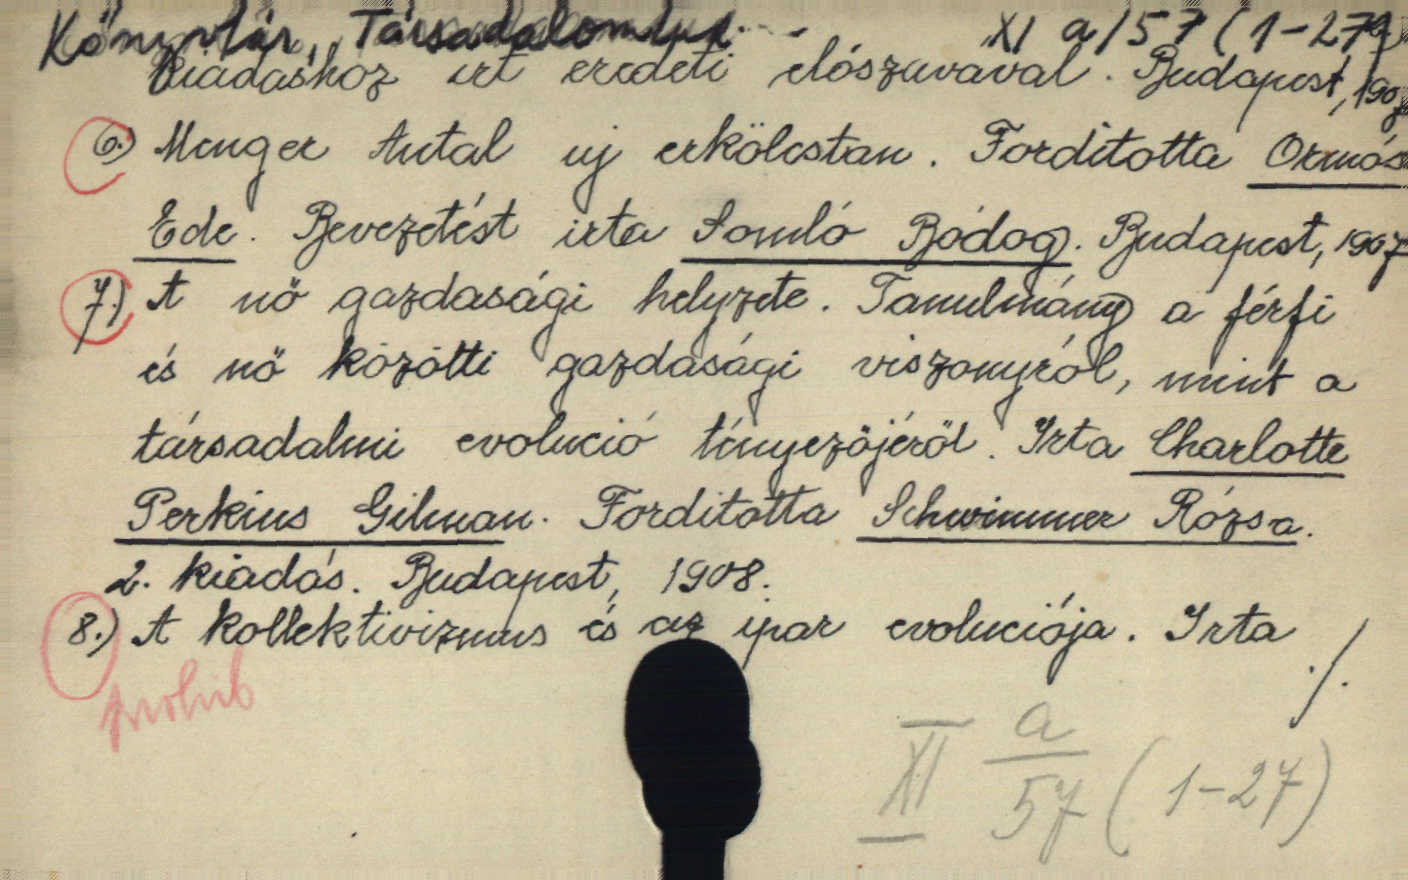 Könyvtár, Társadalomtud. XI a/57 (1-27)
kiadáshoz irt eredeti előszavával. Budapest, 190
6.) Menger Antal uj erkölcstan. Forditotta Ormós
Ede. Bevezetést irta Somló Bódog. Budapest, 1907
7.) A nő gazdasági helyzete. Tanulmány a férfi
és nő közötti gazdasági viszonyról, mint a
társadalmi evolució tényezőjéről. Irta Charlotte
Perkins Gilman. Forditotta Schwimmer Rózsa.
2. kiadás. Budapest, 1908.
8.) A kollektivizmus és az ipar evoluciója. Irta
./.
prohib
XI a/57 (1-27)